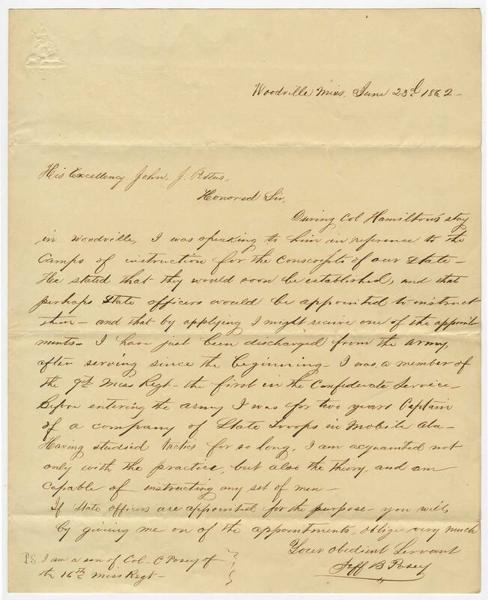 Woodville Miss. June 23d 1862-
His Excellency John. J. Pettus.
Honored Sir,
During Col Hamilton's stay
in Woodville, I was speaking to him in reference to the
Camps of instruction for the Conscripts of our State-
He stated that they would soon be established, and that
perhaps State officers would be appointed to instruct
them- and that by applying I might recive one of the appoint
ments. I have just been discharged from the Army,
after serving since the beginning- I was a member of
the 9th Miss Regt- the first in the Confederate Service-
Before entering the army I was for two years Captain
of a company of State Troops in Mobile Ala-
Having studied tactics for so long, I am acquainted not
only with the practice, but also the theory, and am
capable of instructing any set of men-
If State officers are appointed for the purpose- you will
by giving me on of the appointments, oblige very much
Your obedient Servant
Jeff B Posey
P.S. I am a son of Col- C Posey of
the 16th Miss Regt-